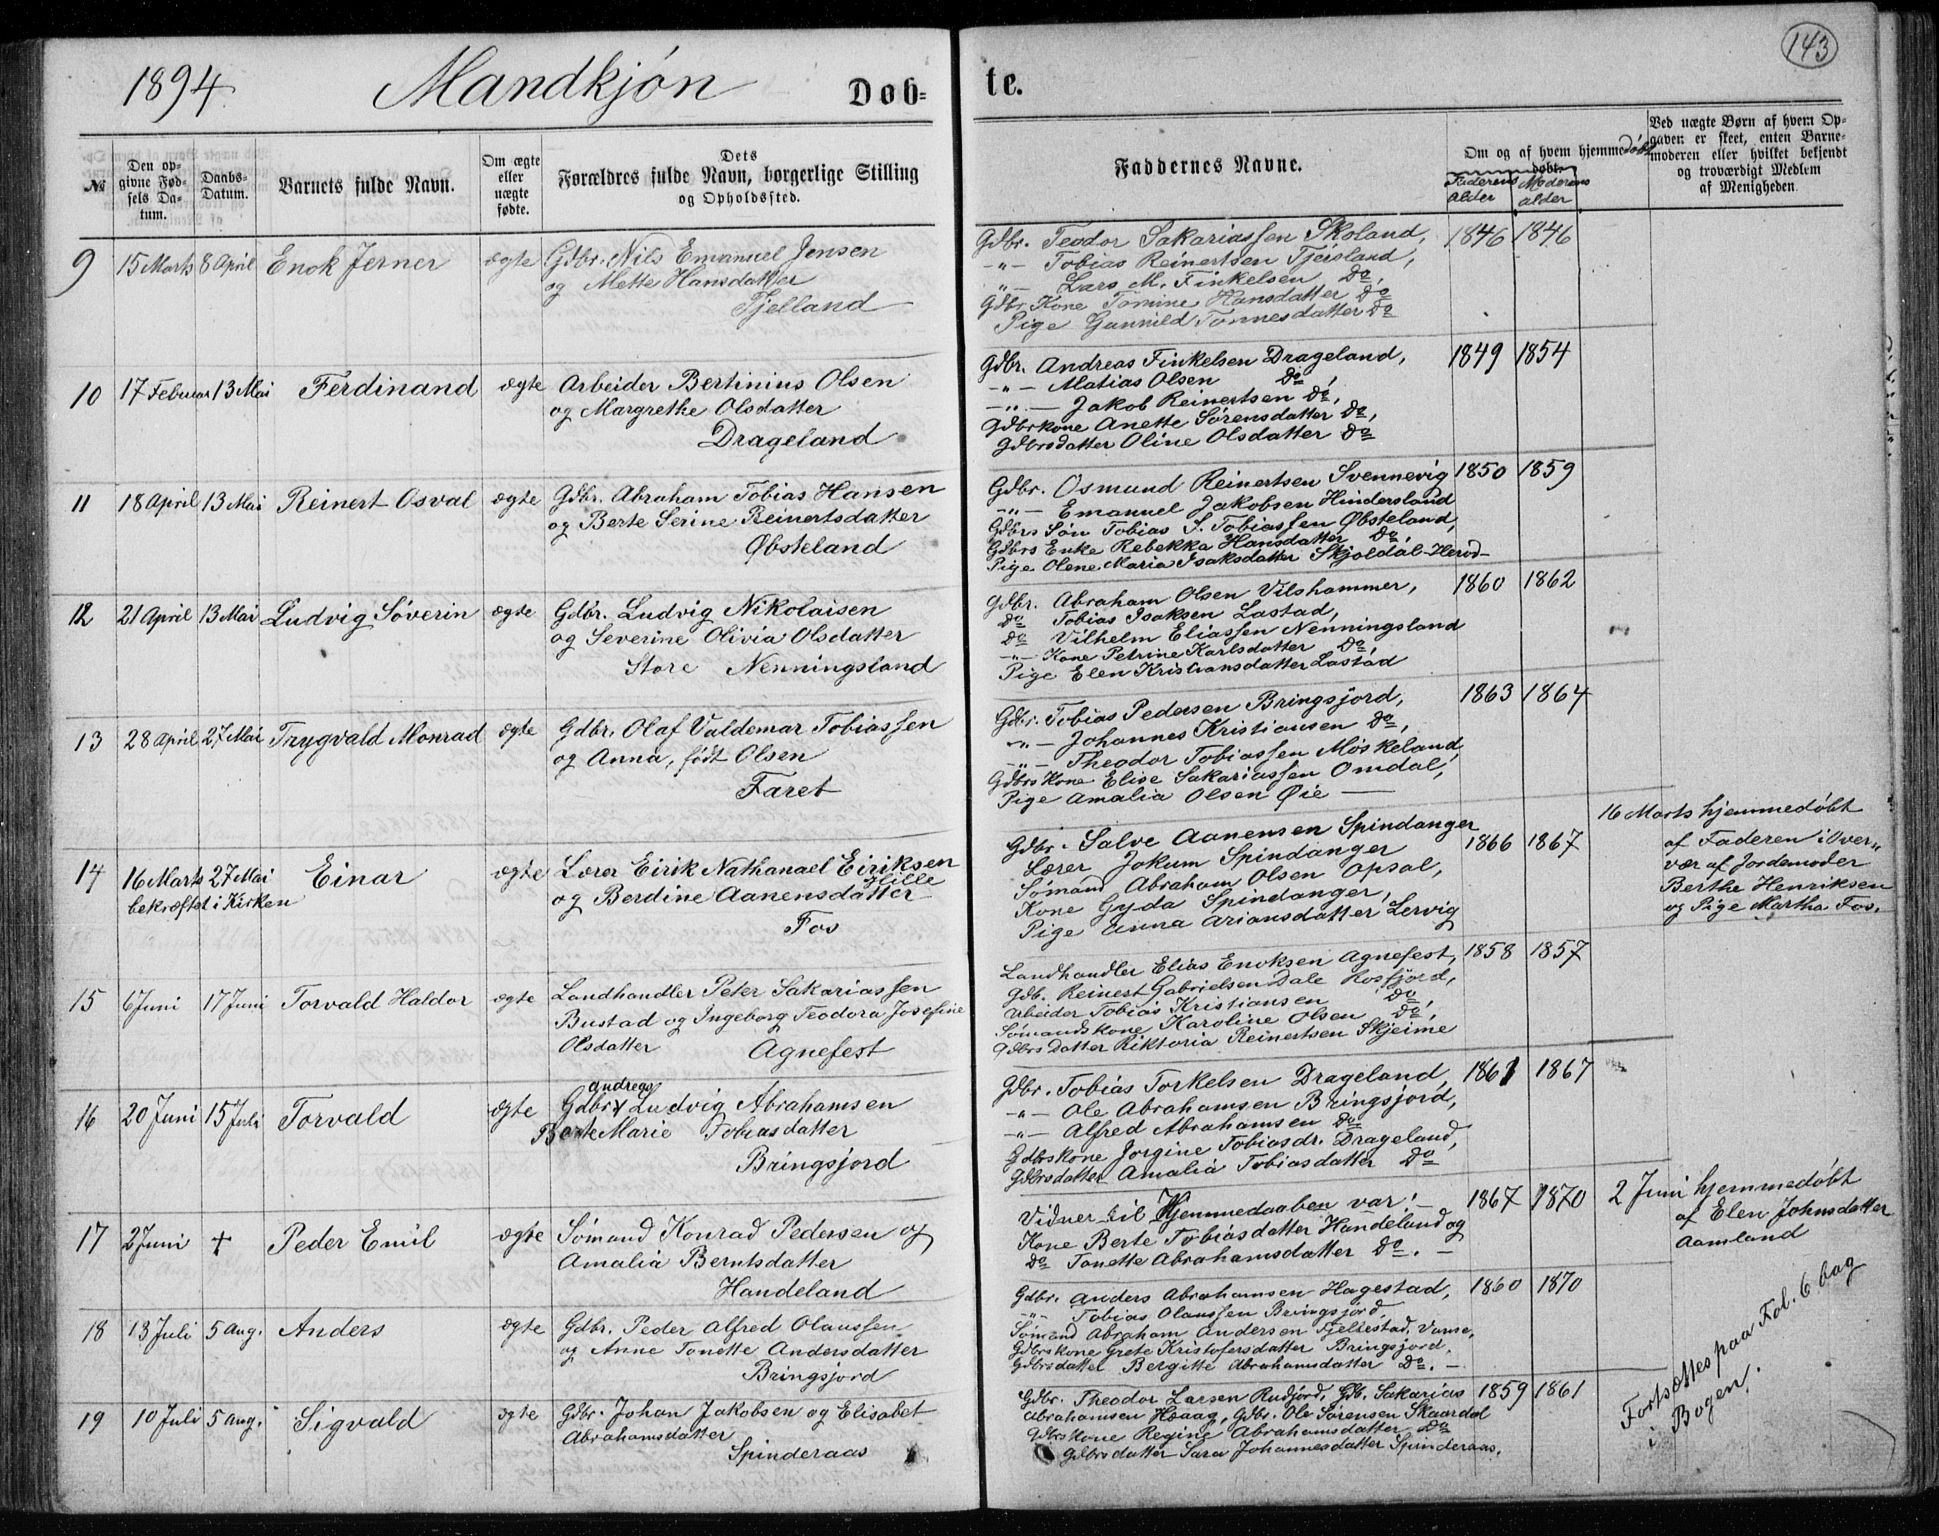 143
1894 Mandkjøn Døb= te.
№
Den op-
givne Fød-
sels Da-
tum.
Daabs-
Datum.
Barnets fulde Navn.
Om ægte
eller
uægte
fødte.
Dets
Forældres fulde Navn, borgerlige Stilling
og Opholdssted.
Faddernes Navne.
Om og af hvem hjemmedøbt
døbt.
Faderens alder
Moderens alder
Ved uægte Børn af hvem Op-
gaven er skeet, enten Barne-
moderen eller hvilket bekjendt
og troværdigt Medlem
af Menigheden.
9 15 Marts 8 April Enok Jerner ægte Gdbr. Nils Emanuel Jensen
og Mette Hansdatter
Fjelland
Gdbr. Teodor Sakariassen Skoland, 1846 1846
-"- Tobias Reinertsen Tjersland,
-"- Lars M. Finkelsen Do,
Gdbr. Kone Tomine Hansdatter Do
Pige Gunnild Tønnesdatter Do
10 17 Februar 13 Mai Ferdinand ægte Arbeider Bertinius Olsen
og Margrethe Olsdatter
Drageland
Gdbr. Andreas Finkelsen Drageland, 1849 1854
-"- Matias Olsen Do,
-"- Jakob Reinertsen Do,
Gdbrskone Anette Sørensdatter Do,
Gdbrsdatter Oline Olsdatter Do
11 18 April 13 Mai Reinert Osval ægte Gdbr. Abraham Tobias Hansen
og Berte Serine Reinertsdatter
Øbsteland
Gdbr. Osmund Reinertsen Svennevig 1850 1859
-"- Emanuel Jakobsen Hindersland
Gdbrs Søn Tobias S. Tobiassen Øbsteland,
Gdbrs Enke Rebekka Hansdatter Do,
Pige Olene Maria Isaksdatter Skjoldal-Herød-
12 21 April 13 Mai Ludvig Søverin ægte Gdbr. Ludvig Nikolaisen
og Severine Olivia Olsdatter
Store Nenningsland
Gdbr. Abraham Olsen Vilshammer, 1860 1862
Do Tobias Isaksen Lastad,
Do Vilhelm Eliassen Nenningsland
-"- Kone Petrine Karlsdatter Do,
Pige Elen Kristiansdatter Lastad
13 28 April 27 Mai Trygvald Monrad ægte Gdbr. Olaf Valdemar Tobiassen
og Anna, født Olsen
Faret
Gdbr. Tobias Pedersen Bringsjord, 1863 1864
-"- Johannes Kristiansen Do,
-"- Theodor Tobiassen Møskeland,
Gdbrs Kone Elise Sakariassen Omdal,
Pige Amalia Olsen Øie
14 16 Marts 27 Mai Einar ægte Lærer Eirik Nathanael Eiriksen
Hille
bekræftet i Kirken
og Berdine Aanensdatter
Fos
Gdbr. Salve Aanensen Spindanger 1866 1867
Lærer Jokum Spindanger
Sømand Abraham Olsen Opsal,
Kone Gyda Spindanger,
Pige Anna Ariansdatter Lervig
16 Marts hjemmedøbt
af Faderen i Over-
vær af Jordemoder
Berthe Henriksen
og Pige Martha Fos.
15 6 Juni 17 Juni Torvald Haldor ægte Landhandler Peter Sakariassen
Bustad og Ingeborg Teodora Josefine
Olsdatter Agnefest
Landhandler Elias Enoksen Agnefest, 1858 1857
Gdb. Reinert Gabrielsen Dale Rosfjord,
Arbeider Tobias Kristiansen Do,
Sømandskone Karoline Olsen Do,
Gdbrs Datter Riktoria Reinertsen Skjeime
16 20 Juni 15 Juli Torvald ægte Gdbr. Ludvig Abrahamsen
Andreas
Berte Marie Tobiasdatter
Bringsjord
Gdbr. Tobias Torkelsen Drageland, 1861 1867
-"- Ole Abrahamsen Bringsjord,
-"- Alfred Abrahamsen Do
Gdbrskone Jorgine Tobiasdr. Drageland,
Gdbrsdatter Amalia Tobiasdatter Do
17 2 Juni + Peder Emil ægte Sømand Konrad Pedersen og
Amalia Berntsdatter
Handeland
Vidner til Hjemmedaaben var: 1867 1870
Kone Berte Tobiasdatter Handeland og
Do Tonette Abrahamsdatter Do. -
2 Juni hjemmedøbt
af Elen Johnsdatter
Aamland
18 13 Juli 5 Aug. Anders ægte Gdbr. Peder Alfred Olaussen
og Anne Tonette Andersdatter
Bringsjord
Gdbr. Anders Abrahamsen Hagestad, 1860 1870
-"- Tobias Olaussen Bringsjord,
Sømand Abraham Andersen Fjellestad, Vanse,
Gdbrskone Grete Kristofersdatter Bringsjord,
Gdbrsdatter Bergitte Abrahamsdatter Do. -
19 10 Juli 5 Aug. Sigvald ægte Gdbr. Johan Jakobsen og Elisabet
Abrahamsdatter
Spinderaas
Gdbr. Theodor Larsen Rudjord, Gdb. Sakarias 1859 1861
Abrahamsen Haaag, Gdbr. Ole Sørensen Skaardal
Gdbrskone Regine Abrahamsdatter Do
Gdbrsdatter Sara Johannesdatter Spinderaas.
Fortsættes paa Fol. 6 bag
i Bogen.